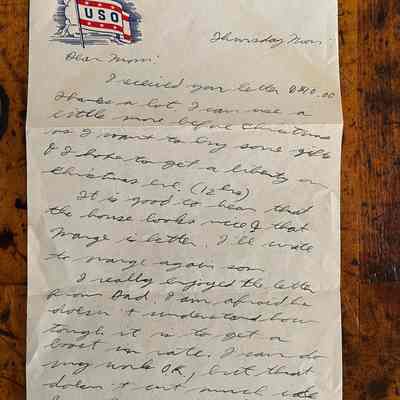 USO
Thursday Morn:
Dear Mom:
I received your letter & $10.00
Thanks a lot. I can use a
little more before Christmas
as I want to buy some gifts
& I hope to get a liberty on
Christmas eve. (12 hrs)
It is good to hear that
the house looks nice & that
Marge is better. I'll write
to Marge again soon
I really enjoyed the letter
from Dad. I am afraid he
doesn't understand how
tough it is to get a
boost in rate. I can do
my work OK, but that
doesn't cut much ice